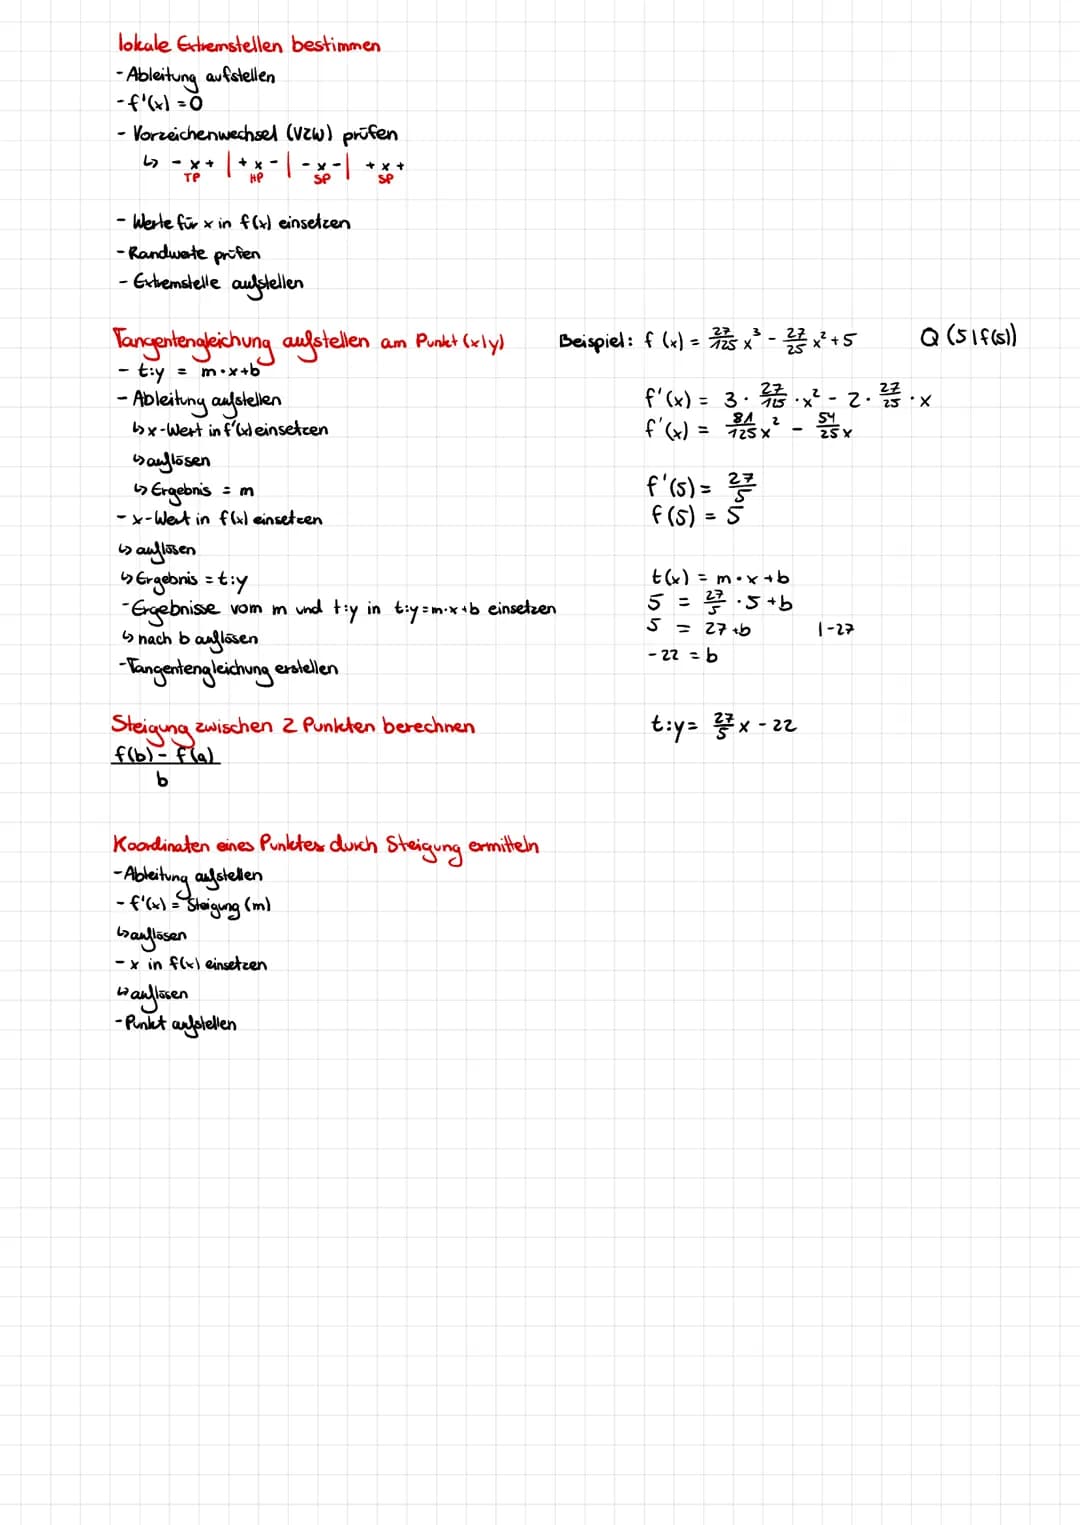 lokale Extremstellen bestimmen
- Ableitung aufstellen
- f'(x) = 0
- Vorzeichenwechsel (VZW) prüfen
↳ - x + | + x - | - x - | + x +
TP HP SP SP
- Werte für x in f(x) einsetzen
- Randwerte prüfen
- Extremstelle aufstellen
Tangentengleichung aufstellen am Punkt (x|y)
- t:y = m·x+b
- Ableitung aufstellen
↳ x-Wert in f'(x) einsetzen
↳ auflösen
↳ Ergebnis = m
- x-Wert in f(x) einsetzen
↳ auflösen
↳ Ergebnis = t:y
- Ergebnisse vom m und t:y in t:y=m·x+b einsetzen
↳ nach b auflösen
- Tangentengleichung erstellen
Beispiel: f(x) = 27/125 x³ - 27/25 x² + 5 Q (5|f(5))
f'(x) = 3 · 27/125 · x² - 2 · 27/25 · x
f'(x) = 81/125 x² - 54/25 x
f'(5) = 27/5
f(5) = 5
t(x) = m·x+b
5 = 27/5 · 5 + b
5 = 27 + b |-27
-22 = b
t:y = 27/5 x - 22
Steigung zwischen 2 Punkten berechnen
f(b) - f(a)
b
Koordinaten eines Punktes durch Steigung ermitteln
- Ableitung aufstellen
- f'(x) = Steigung (m)
↳ auflösen
- x in f(x) einsetzen
↳ auflösen
- Punkt aufstellen